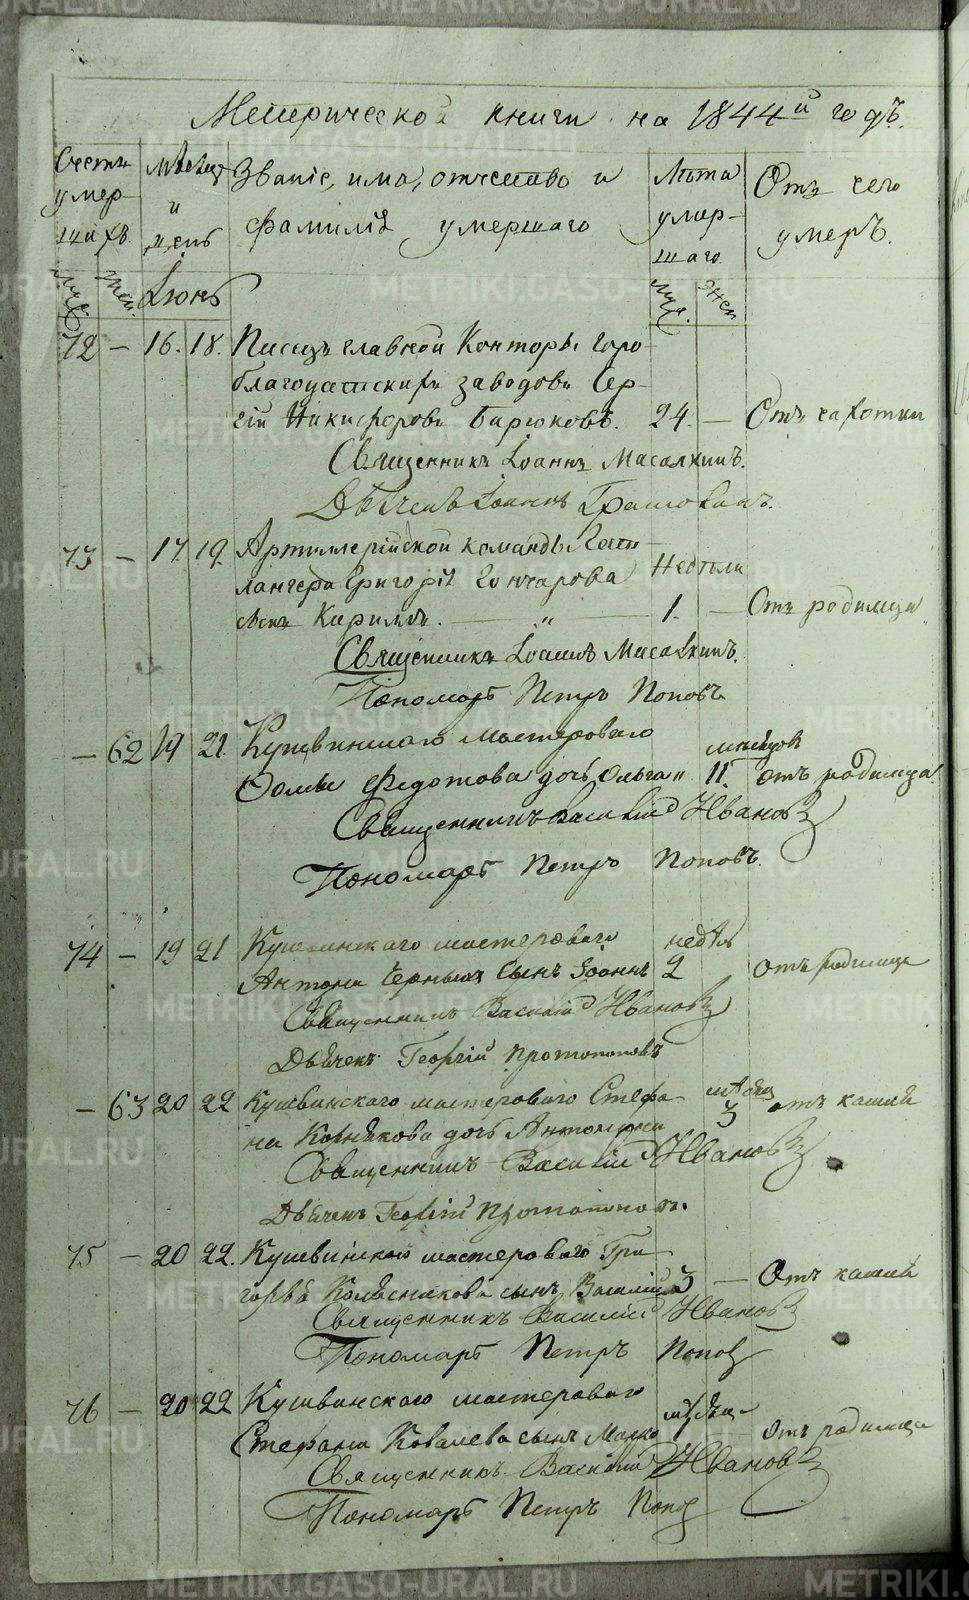 Метрической книги на 1844й годъ.
Счетъ умер-шихъ. Мѣсяцъ и день Званіе, имя, отчество и фамилія умершаго Лѣта умер-шаго. Отъ чего умеръ.
муж. жен. Іюнь муж. жен.
72 — 16. 18. Писецъ главной Конторы Горо
благодатскихъ заводовъ Сер-
гій Никифоровъ Бирюковъ. 24. — Отъ чахотки
Священникъ Іоаннъ Масалкинъ.
Дьячекъ Іоаннъ
73 — 17 19. Артиллерійской команды Ганд
лангера Григорія Гончарова Недѣли
сынъ Кирилъ. — „ — 1. — Отъ родимца
Священникъ Іоаннъ Масалкинъ.
Пономарь Петръ Поповъ
— 62 19 21. Кушвинскаго мастероваго мѣсяцовъ
Ѳомы Федотова дочь Ольга „ 11. отъ родимца
Священникъ Василій Ивановъ
Пономарь Петръ Поповъ.
74 — 19 21 Кушвинскаго мастероваго недѣль
Антона Черныхъ сынъ Іоаннъ 2 Отъ родимца
Священникъ Василій Ивановъ
Дьячекъ Георгій Протопоповъ
— 63 20 22 Кушвинскаго мастероваго Стефа- мѣсяц 3 отъ кашля
на дочь Антонина
Священникъ Василій Ивановъ
Дьячекъ Георгій Протопоповъ.
75 — 20 22. Кушвинскаго мастероваго Гри
горья Колесникова сынъ Василій 3 — Отъ кашля
Священникъ Василій Ивановъ
Пономарь Петръ Поповъ
76 — 20 22 Кушвинскаго мастероваго мѣсяц
Стефана Ковалева сынъ 1 — Отъ родимца
Священникъ Василій Ивановъ
Пономарь Петръ Поповъ
METRIKI.GASO-URAL.RU